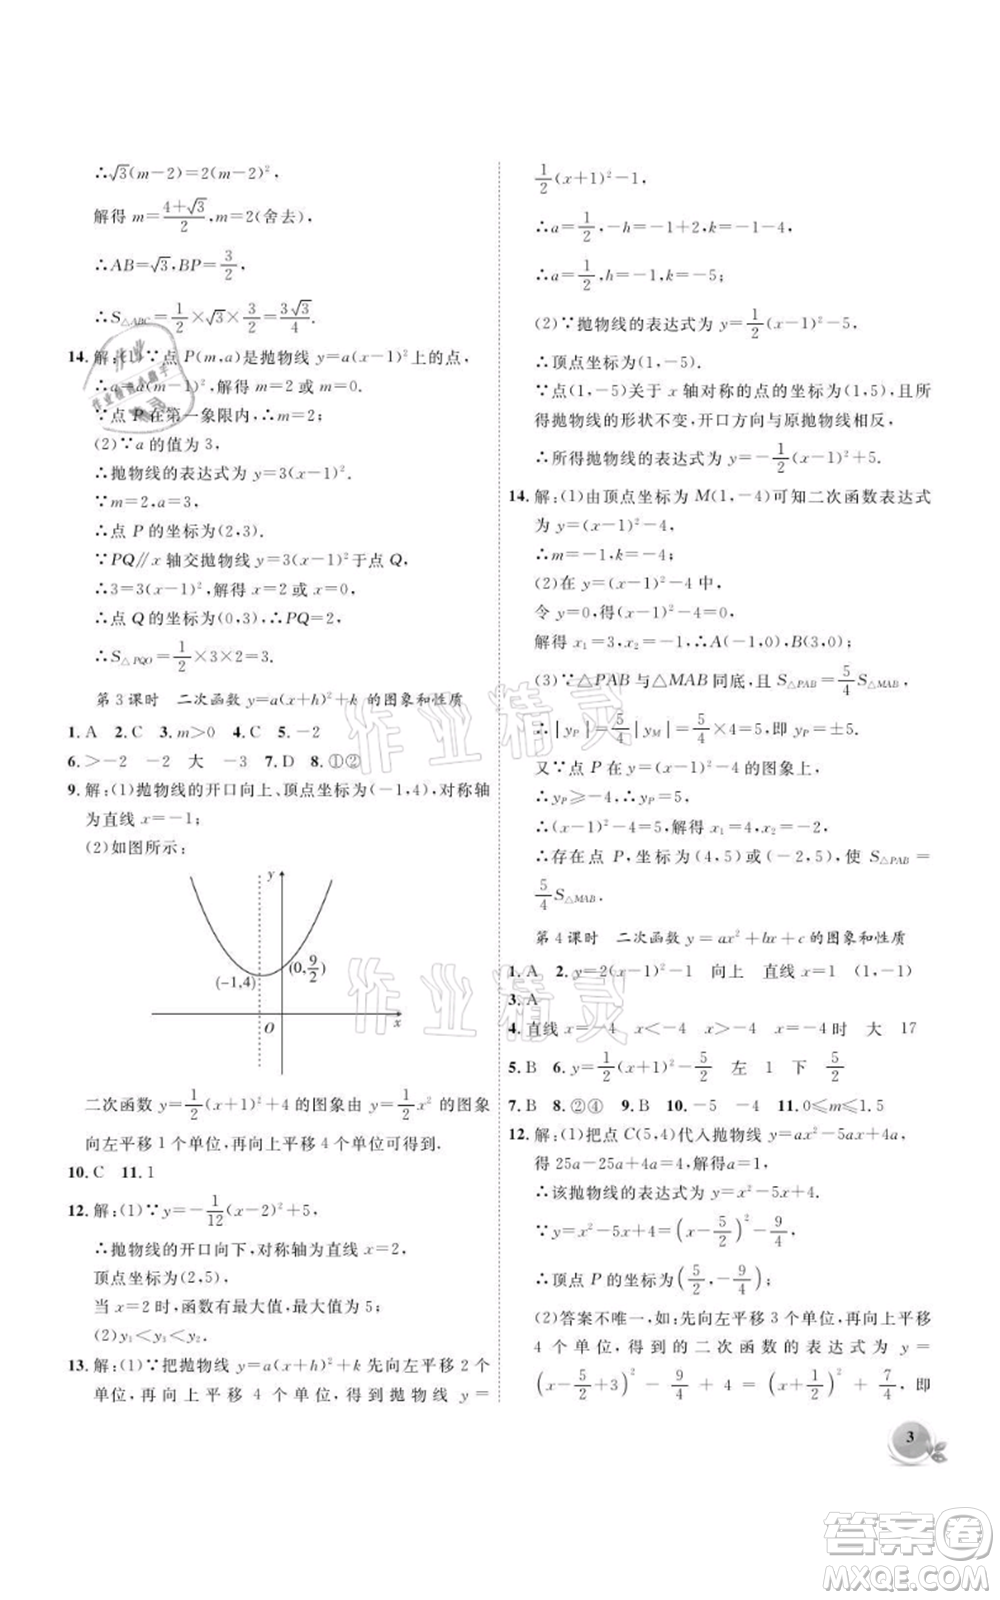 ∴√3(m-2)=2(m-2)²,
解得 m=(4+√3)/2,m=2(舍去),
∴AB=√3,BP=3/2,
∴S△ABC=1/2×√3×3/2=3√3/4.
14.解:(1)∵点 P(m,a)是抛物线 y=a(x-1)²上的点,
∴a=a(m-1)²,解得 m=2 或 m=0.
∵点 P 在第一象限内,∴m=2;
(2)∵a 的值为 3,
∴抛物线的表达式为 y=3(x-1)².
∵m=2,a=3,
∴点 P 的坐标为(2,3).
∵PQ∥x 轴交抛物线 y=3(x-1)²于点 Q,
∴3=3(x-1)²,解得 x=2 或 x=0,
∴点 Q 的坐标为(0,3),∴PQ=2,
∴S△PQO=1/2×3×2=3.
第 3 课时 二次函数 y=a(x+h)²+k 的图象和性质
1.A 2.C 3.m>0 4.C 5.-2
6.>-2 -2 大 -3 7.D 8.①②
9.解:(1)抛物线的开口向上、顶点坐标为(-1,4),对称轴
为直线 x=-1;
(2)如图所示:
y
(0,9/2)
(-1,4)
O
x
二次函数 y=1/2(x+1)²+4 的图象由 y=1/2x² 的图象
向左平移 1 个单位,再向上平移 4 个单位可得到.
10.C 11.1
12.解:(1)∵y=-1/12(x-2)²+5,
∴抛物线的开口向下,对称轴为直线 x=2,
顶点坐标为(2,5),
当 x=2 时,函数有最大值,最大值为 5;
(2)y₁<y₃<y₂.
13.解:(1)∵把抛物线 y=a(x+h)²+k 先向左平移 2 个
单位,再向上平移 4 个单位,得到抛物线 y=
1/2(x+1)²-1,
∴a=1/2,-h=-1+2,k=-1-4,
∴a=1/2,h=-1,k=-5;
(2)∵抛物线的表达式为 y=1/2(x-1)²-5,
∴顶点坐标为(1,-5).
∵点(1,-5)关于 x 轴对称的点的坐标为(1,5),且所
得抛物线的形状不变,开口方向与原抛物线相反,
∴所得抛物线的表达式为 y=-1/2(x-1)²+5.
14.解:(1)由顶点坐标为 M(1,-4)可知二次函数表达式
为 y=(x-1)²-4,
∴m=-1,k=-4;
(2)在 y=(x-1)²-4 中,
令 y=0,得(x-1)²-4=0,
解得 x₁=3,x₂=-1,∴A(-1,0),B(3,0);
(3)∵△PAB 与△MAB 同底,且 S△PAB=5/4S△MAB,
∴|yP|=5/4|yM|=5/4×4=5,即 yP=±5.
又∵点 P 在 y=(x-1)²-4 的图象上,
∴yP≥-4,∴yP=5,
∴(x-1)²-4=5,解得 x₁=4,x₂=-2,
∴存在点 P,坐标为(4,5)或(-2,5),使 S△PAB=
5/4S△MAB.
第 4 课时 二次函数 y=ax²+bx+c 的图象和性质
1.A 2.y=2(x-1)²-1 向上 直线 x=1 (1,-1)
3.A
4.直线 x=-4 x<-4 x>-4 x=-4 时 大 17
5.B 6.y=1/2(x+1)²-5/2 左 1 下 5/2
7.B 8.②④ 9.B 10.-5 -4 11.0≤m≤1.5
12.解:(1)把点 C(5,4)代入抛物线 y=ax²-5ax+4a,
得 25a-25a+4a=4,解得a=1,
∴该抛物线的表达式为 y=x²-5x+4.
∵y=x²-5x+4=(x-5/2)²-9/4,
∴顶点 P 的坐标为(5/2,-9/4);
(2)答案不唯一,如:先向左平移 3 个单位,再向上平移
4 个单位,得到的二次函数的表达式为 y=
(x-5/2+3)²-9/4+4=(x+1/2)²+7/4,即
3
作业精灵
作业精灵
作业
作业检查小助手
精灵
答案卷
MXQE.COM